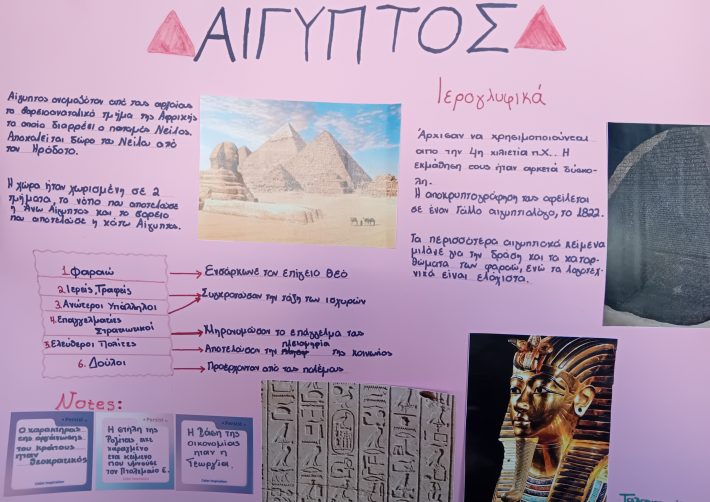 ΑΙΓΥΠΤΟΣ
Αίγυπτος ονομαζόταν από τους αρχαίους
το βορειοανατολικό τμήμα της Αφρικής
το οποίο διαρρέει ο ποταμός Νείλος.
Αποκαλείται δώρο του Νείλου από
τον Ηρόδοτο.
Η χώρα ήταν χωρισμένη σε 2
τμήματα, το νότιο που αποτελούσε
η Άνω Αίγυπτος και το βορείο
που αποτελούσε η κάτω Αίγυπτος.
1. Φαραώ
Ενσάρκωνε τον επίγειο Θεό
2. Ιερείς, Γραφείς
3. Ανώτεροι Υπάλληλοι
Συγκροτούσαν την τάξη των ισχυρών
4. Επαγγελματίες
Στρατιωτικοί
Κληρονομούσαν το επάγγελμα τους
5. Ελεύθεροι Πολίτες
Αποτελούσαν την πλειοψηφία της κοινωνίας
6. Δούλοι
Προέρχονταν από τους πολέμους
Ιερογλυφικά
Άρχισαν να χρησιμοποιούνται
από την 4η χιλιετία π.Χ.. Η
εκμάθηση τους ήταν αρκετά δύσκο-
λη.
Η αποκρυπτογράφηση τους οφείλεται
σε έναν Γάλλο αιγυπτιολόγο, το 1822.
Τα περισσότερα αιγυπτιακά κείμενα
μιλάνε για την δράση και τα κατορ-
θώματα των φαραώ, ενώ τα λογοτεχ-
νικά είναι ελάχιστα.
Notes:
Persist
Ο χαρακτήρας
της οργάνωσης
του κράτους
ήταν
Θεοκρατικός
Persist
Η στήλη της
Ροζέτας, έχει
χαραγμένο
ένα κείμενο
που υμνούσε
τον Πτολεμαίο Ε.
Persist
Η βάση της
οικονομίας
ήταν η
Γεωργία.